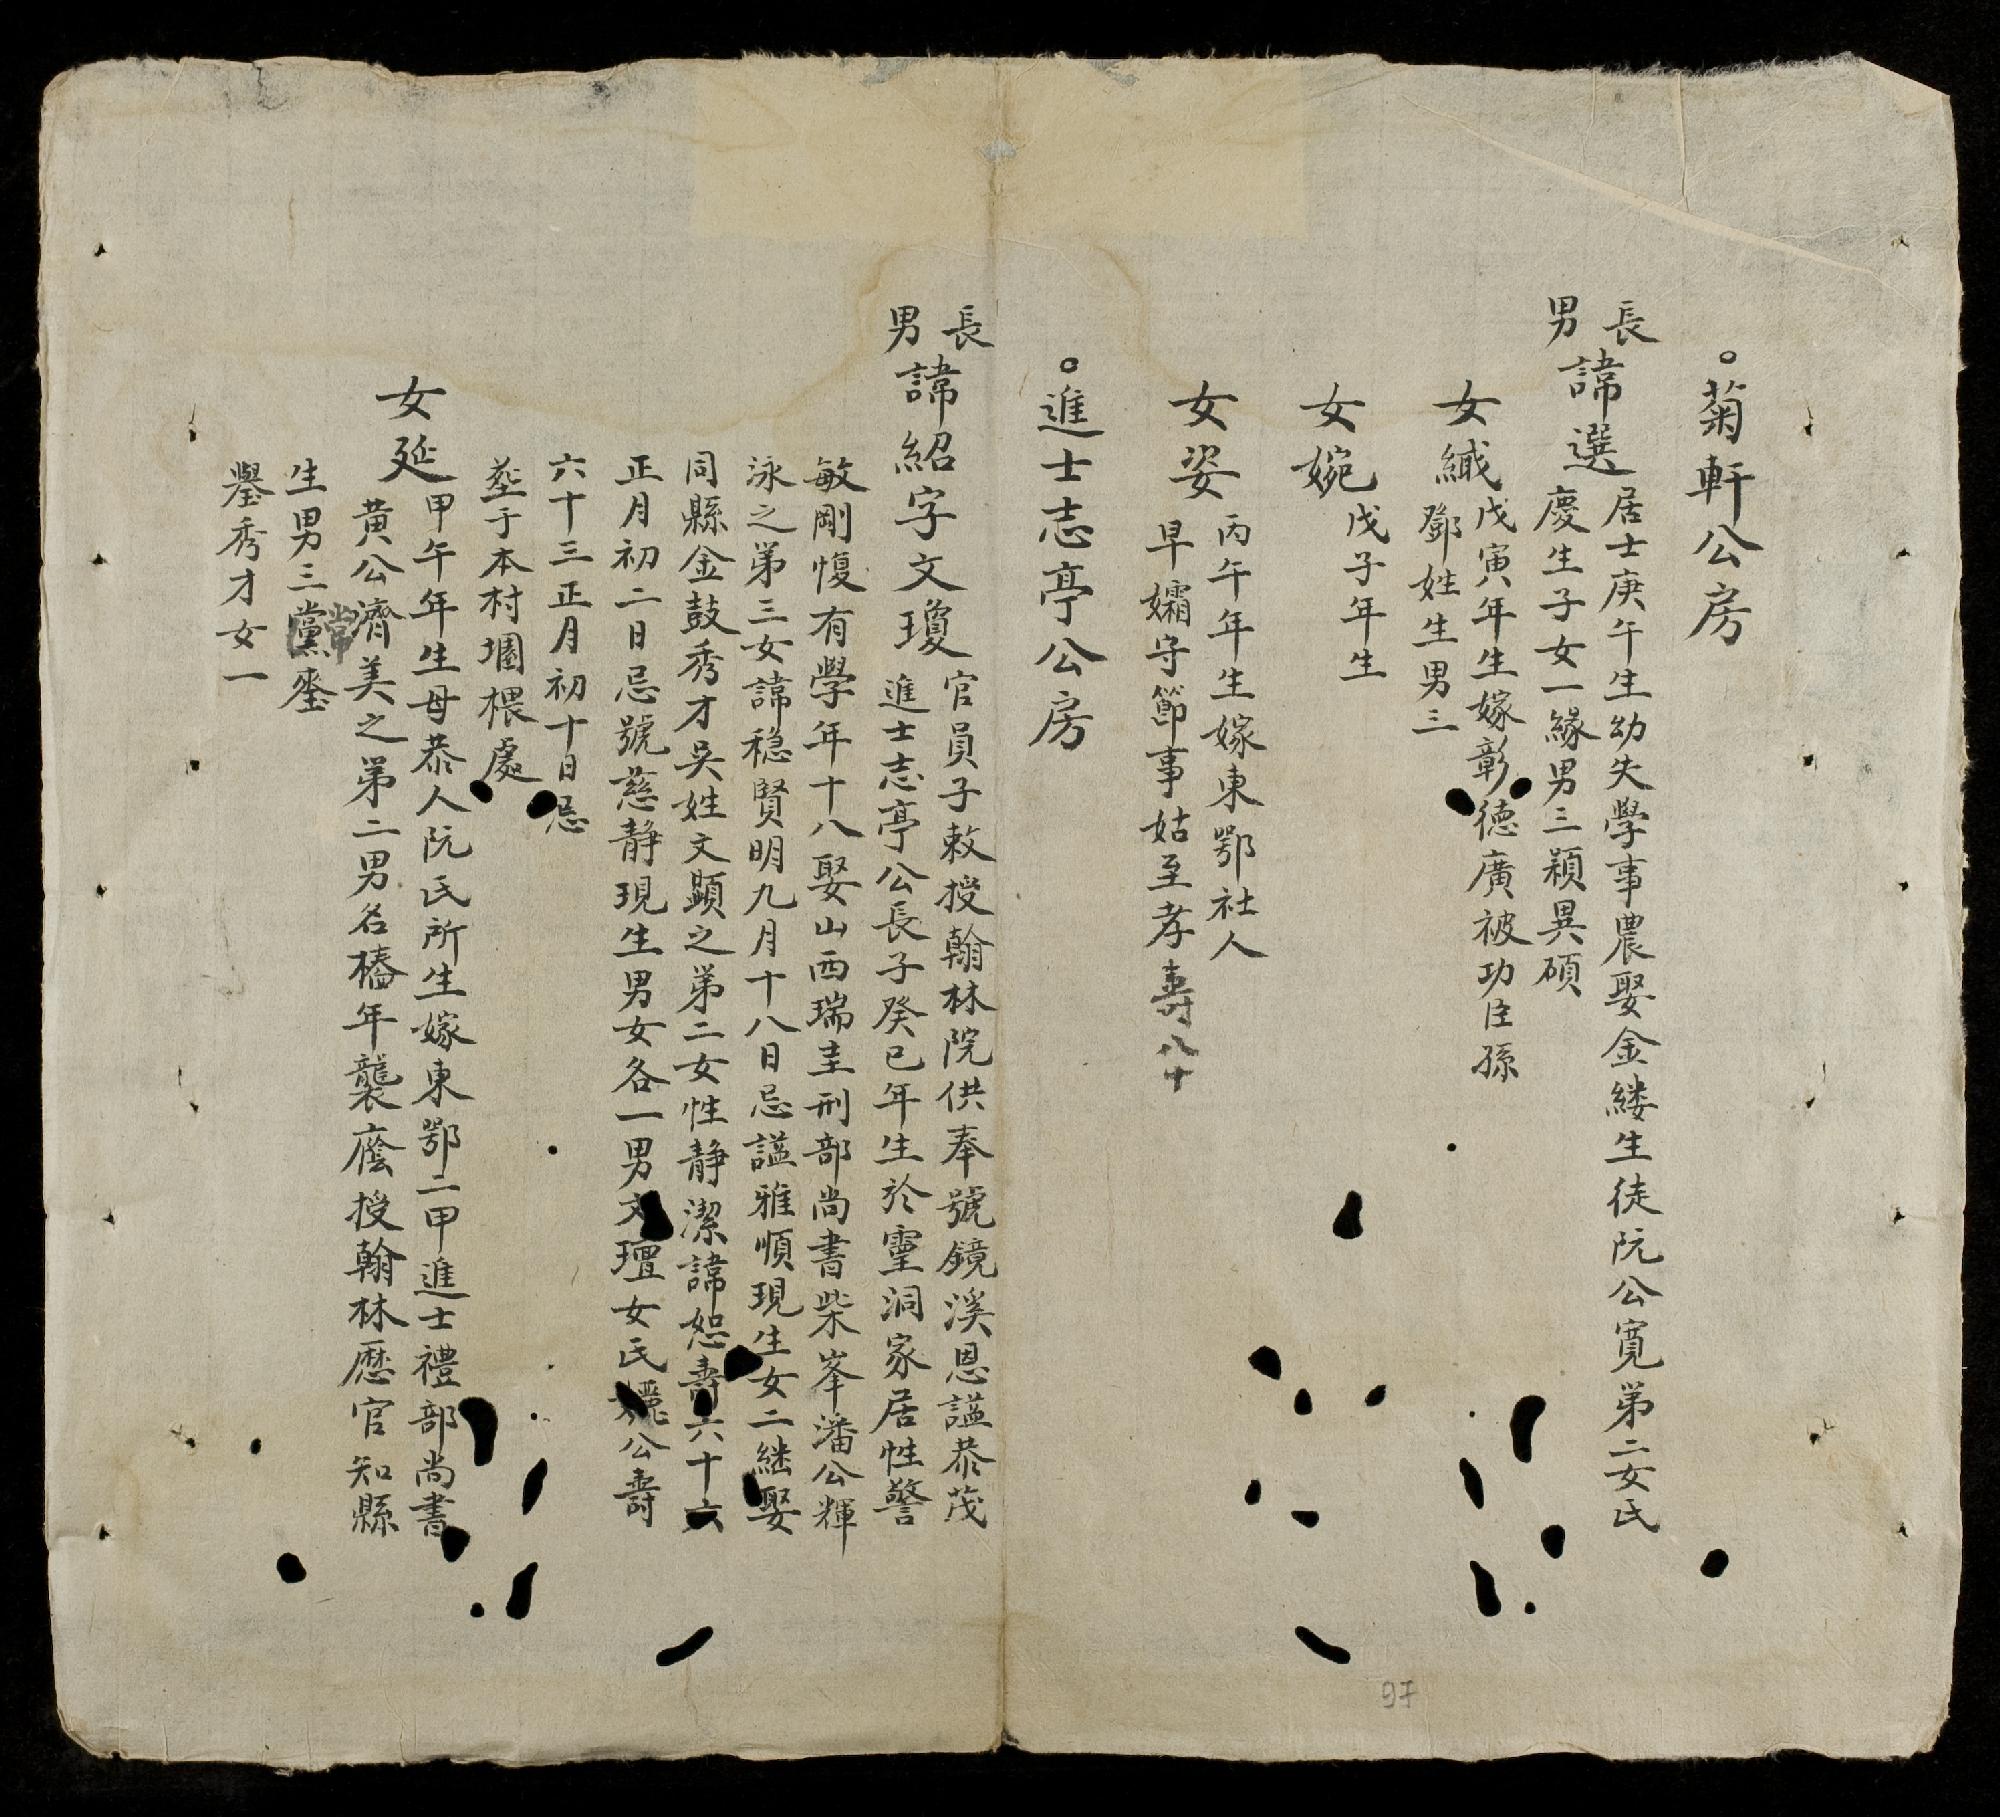 。菊軒公房
長男
諱選
居士庚午生幼失學事農娶金縷生徒阮公寬第二女氏
慶生子女一緣男三穎異碩
女纎
戊寅年生嫁彰德廣被功臣孫
鄧姓生男三
女婉
戊子年生
女姿
丙午年生嫁東鄂社人
早孀守節事姑至孝壽八十
。進士志亭公房
長男
諱紹字文瓊
官員子敕授翰林院供奉號鏡溪恩謚恭茂
進士志亭公長子癸巳年生於霊洞家居性警
敏剛愎有學年十八娶山西瑞圭刑部尚書柴峯潘公輝
泳之第三女諱穏賢明九月十八日忌謚雅順現生女二継娶
同縣金鼓秀才吳姓文顯之第二女性静潔諱恕壽六十六
正月初二日忌號慈静現生男女各一男文璮女氏公壽
六十三正月初十日忌
塟于本村堌椳處
女延
甲午年生母恭人阮氏所生嫁東鄂二甲進士禮部尚書
黄公濟美之第二男名樁年襲廕授翰林歴官知縣
生男三黨常瑬
舉秀才女一
97